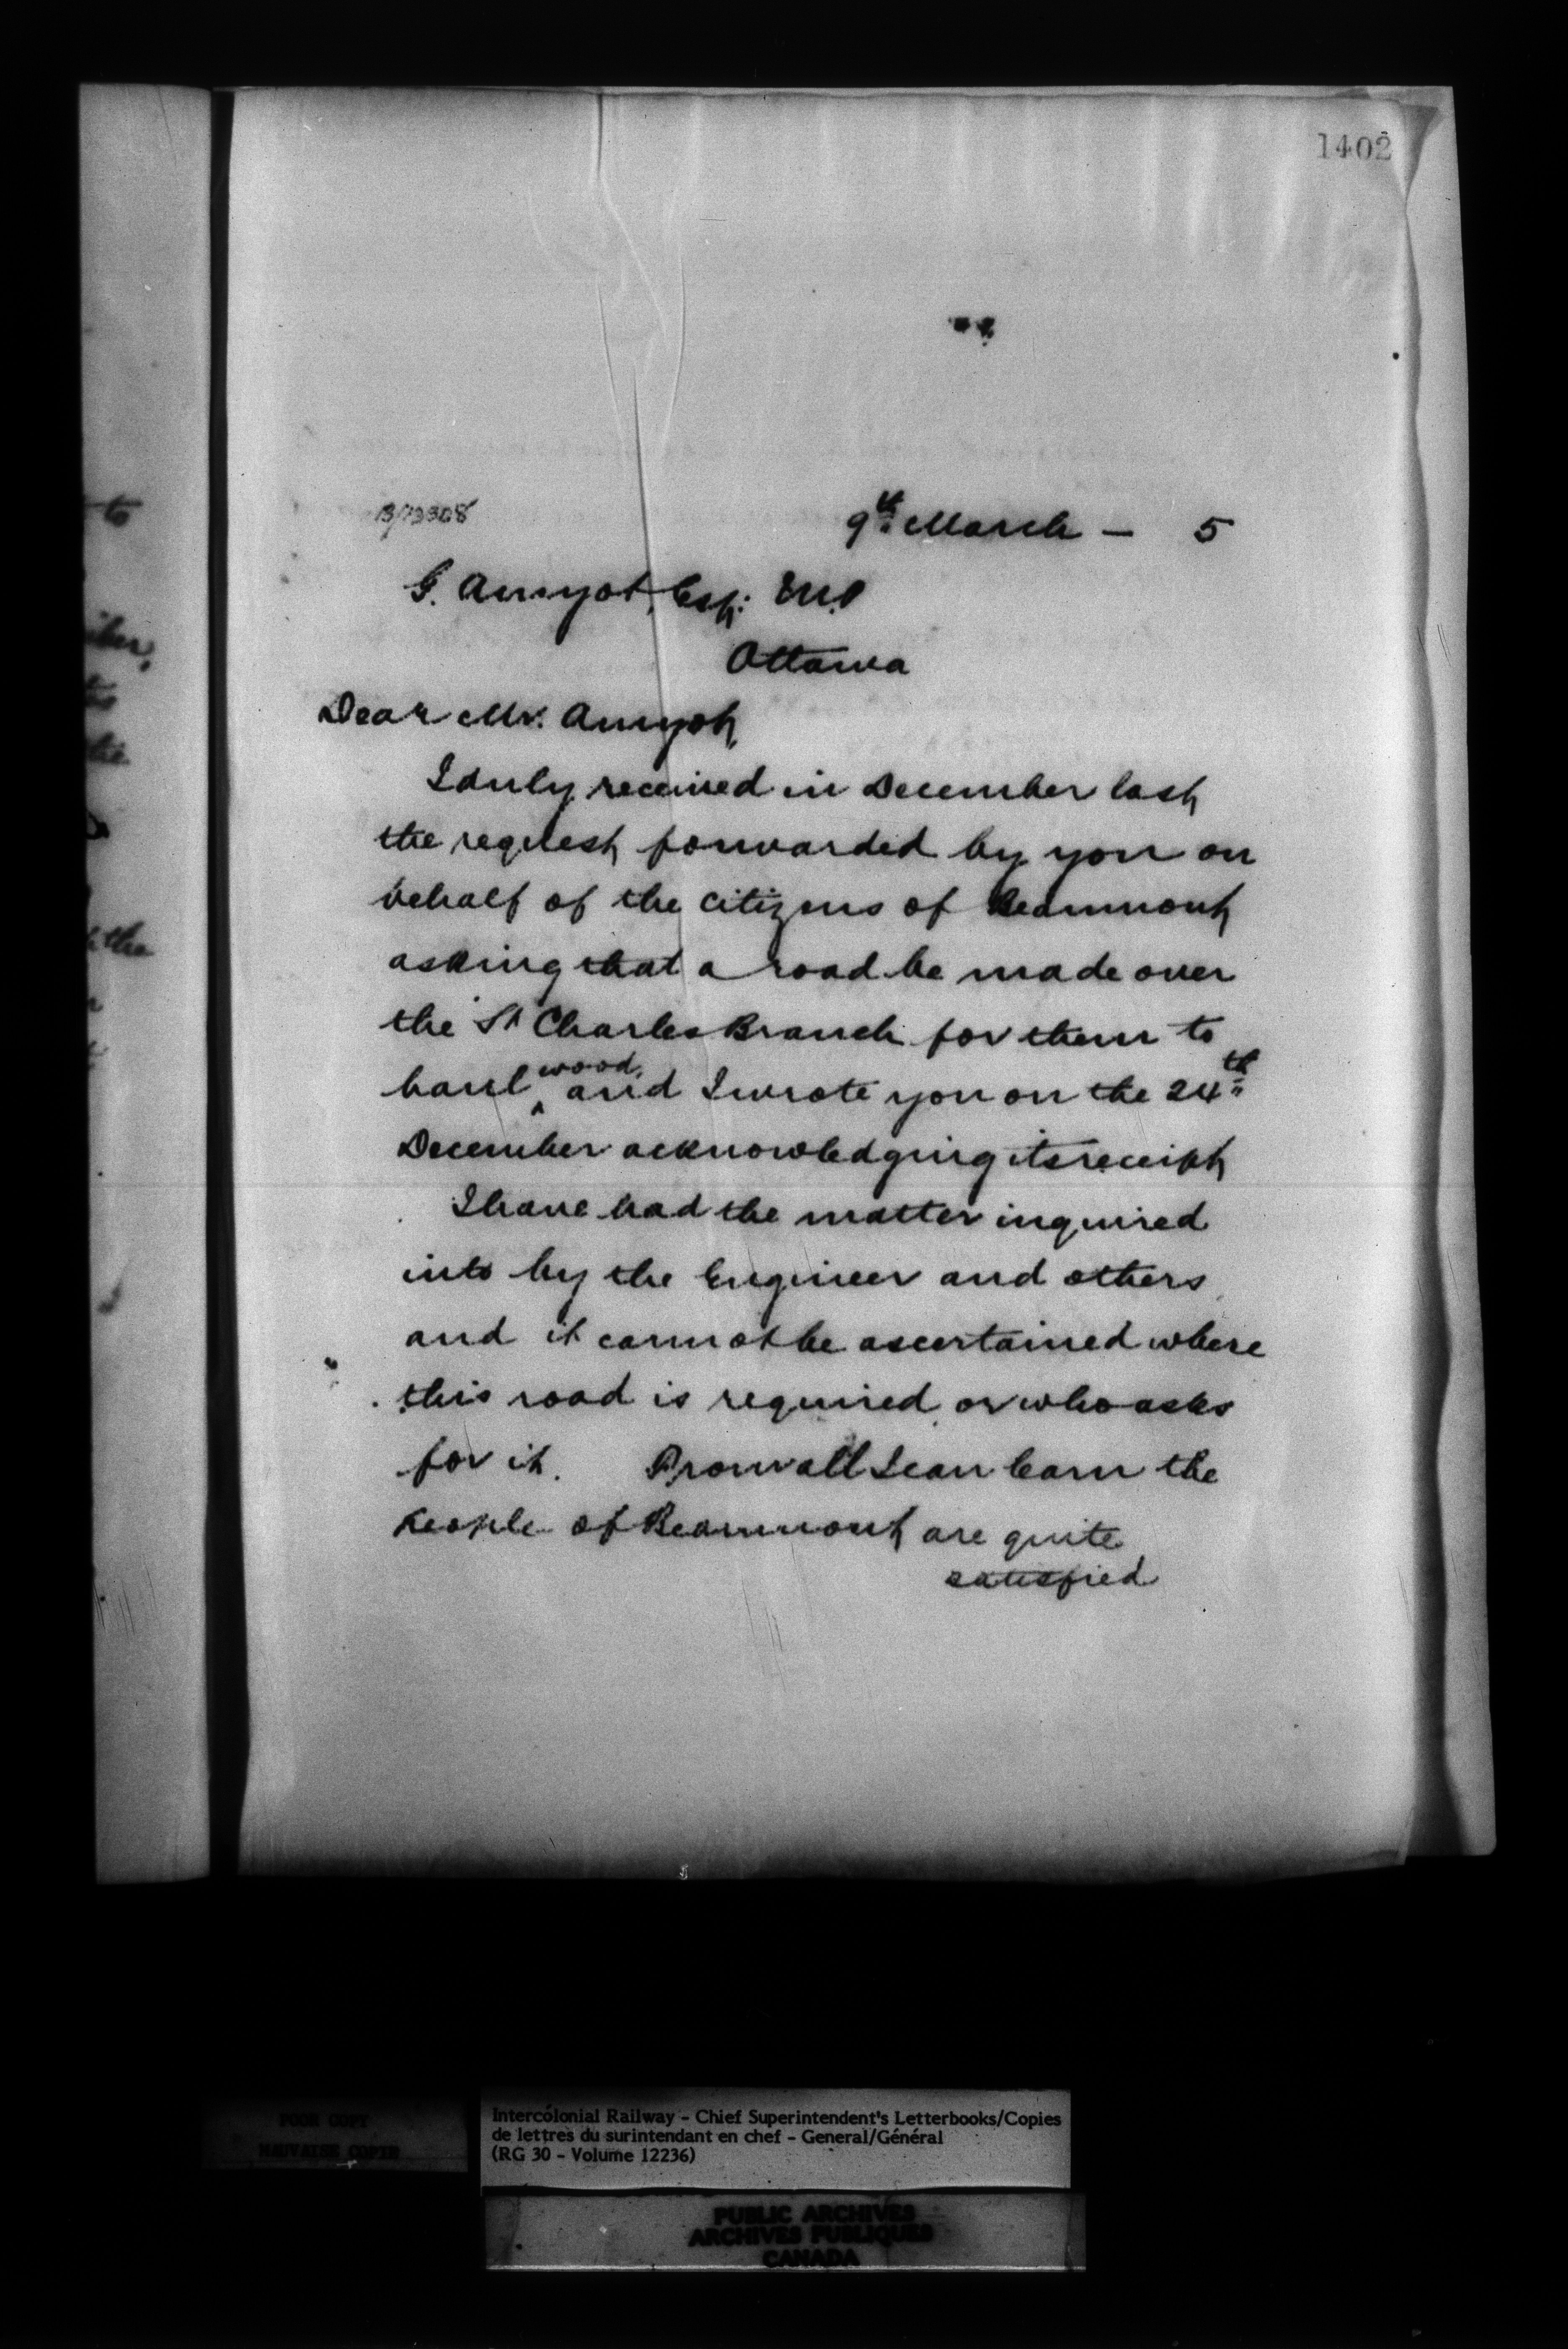 1402
B/73308
9th March - 5
G. Amyot, Esq: M.P
Ottawa
Dear Mr. Amyot,
I duly received in December last
the request forwarded by you on
behalf of the citizens of Beaumont
asking that a road be made over
the St Charles Branch for them to
haul wood, and I wrote you on the 24th
December acknowledging its receipt
I have had the matter inquired
into by the Engineer and others
and it cannot be ascertained where
this road is required or who asks
for it. From all I can learn the
people of Beaumont are quite
satisfied
to
the
POOR COPY
MAUVAISE COPIE
Intercolonial Railway - Chief Superintendent's Letterbooks/Copies
de lettres du surintendant en chef - General/Général
(RG 30 - Volume 12236)
PUBLIC ARCHIVES
ARCHIVES PUBLIQUES
CANADA